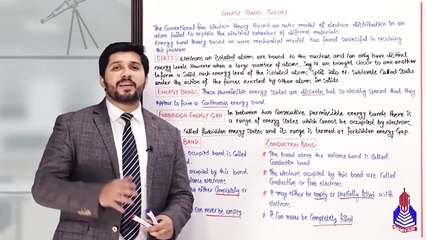 ENERGY BAND THEORY
The Conventional free electron theory Based on bohr model of electron distribution in an
atom failed to explain the electrical behaviour of different materials.
Energy band theory based on wave mechanical model has found successful in resolving
this problem.
STATES electrons an isolated atom are bound to the nuclear, and can only have distinct
energy levels. However when a large number of atoms, say N are brought close to one another
to form a solid each energy level of the isolated atom split into N-sublevels called states
under the action of the forces exerted by other atoms in solids
ENERGY BANDS: These permissible energy states are discrete but so closely spaced that they
appear to form a continuous energy band.
FORBIDDEN ENERGY GAP In between two Consecutive permissible energy bands there is
a range of energy states which cannot be occupied by electrons,
is called forbidden energy states, and its range is termed as forbidden energy Gap.
BAND
occupied band is called
occupied by this band
electrons
be either Completely or
can never be empty.
CONDUCTION BAND
The band above the valance band is called
Conduction band
The electrons occupied by this band are
called Conductive or free electron.
It may either be empty or partially filled with
electrons.
It can never be Completely filled.